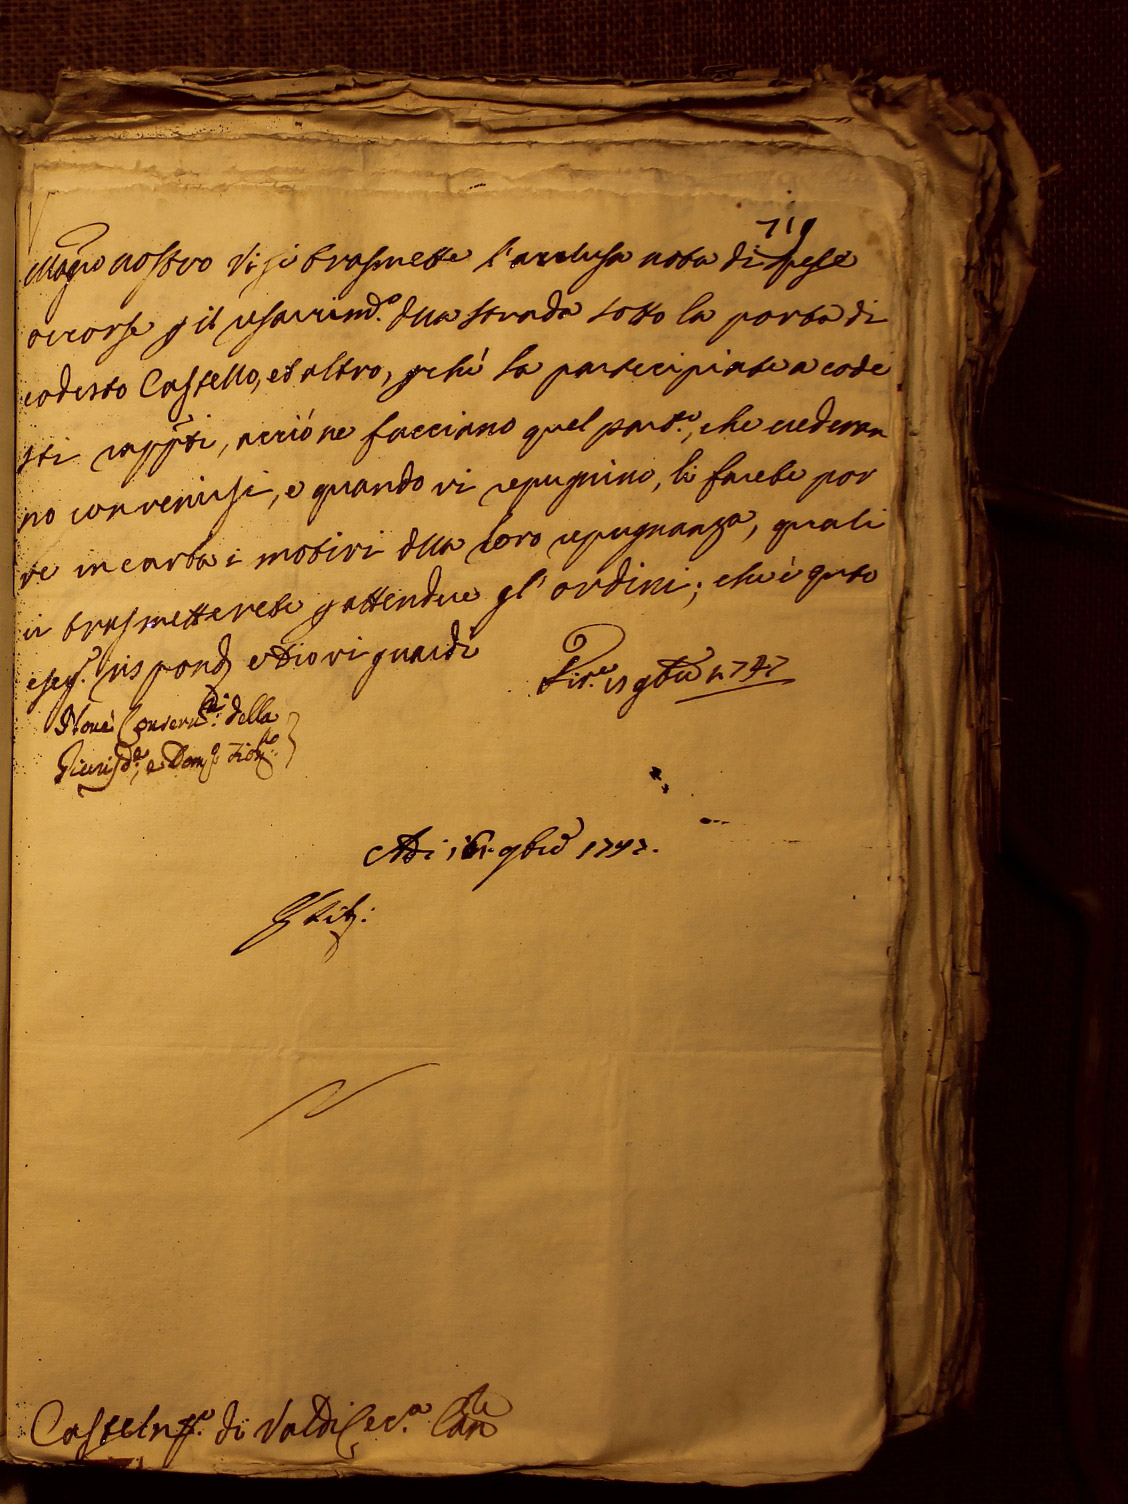 719
Mag.co nostro Vi si trasmette l'acclusa nota di spese
occorse p il risarcim.to dlla strada sotto la porta di
codesto Castello, et altro, pchè la partecipiate a code
sti rapp.ti, acciò ne facciano quel part.o, che crederan
no convenirsi, e quando vi repugnino, li farete por
re in carta i motivi dlla loro repugnanza, quali
ci trasmetterete p attendere gl'ordini; che è q.to
e Dio vi guardi
Fir.e 9bre 1747
Nove Conserv.ri della
Giurisd.e, e Dom.o Fior.no
Adi 16 9bre 1747.
Casteln.o di Valdicec.a Can.re